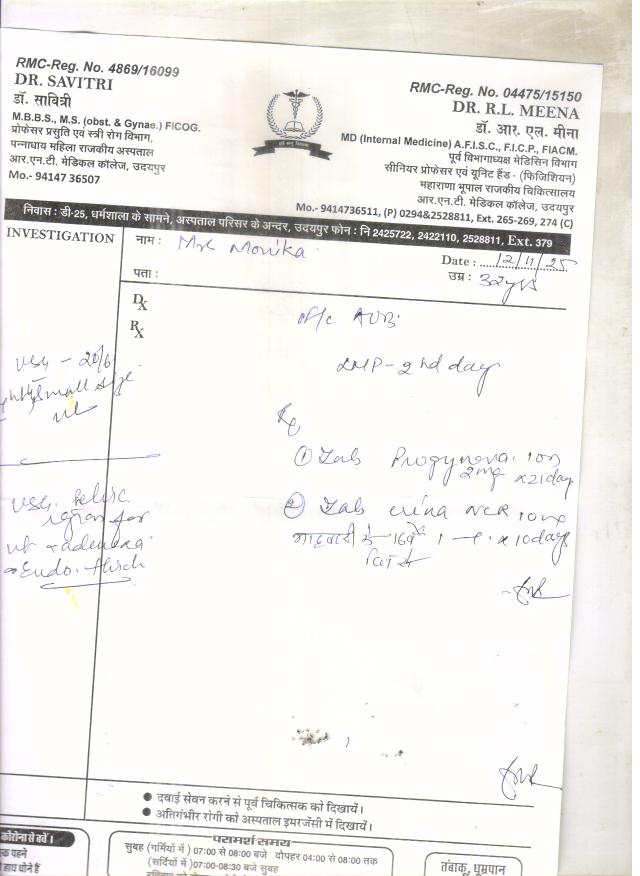 RMC-Reg. No. 4869/16099
DR. SAVITRI
डॉ. सावित्री
M.B.B.S., M.S. (obst. & Gynae.) FICOG.
प्रोफेसर प्रसुति एवं स्त्री रोग विभाग,
पन्नाधाय महिला राजकीय अस्पताल
आर.एन.टी. मेडिकल कॉलेज, उदयपुर
Mo.- 94147 36507
RMC-Reg. No. 04475/15150
DR. R.L. MEENA
डॉ. आर. एल. मीना
MD (Internal Medicine) A.F.I.S.C., F.I.C.P., FIACM.
पूर्व विभागाध्यक्ष मेडिसिन विभाग
सीनियर प्रोफेसर एवं यूनिट हैंड - (फिजिशियन)
महाराणा भूपाल राजकीय चिकित्सालय
आर.एन.टी. मेडिकल कॉलेज, उदयपुर
Mo.- 9414736511, (P) 0294&2528811, Ext. 265-269, 274 (C)
निवास : डी-25, धर्मशाला के सामने, अस्पताल परिसर के अन्दर, उदयपुर फोन : नि 2425722, 2422110, 2528811, Ext. 379
INVESTIGATION
नाम : Mrs Monika
Date : 12/11/25
पता :
उम्र : 32yrs
Dx
Rx
c/o AUB
LMP - 2nd day
Rx
① Tab Progynova
2mg x 21 day
② Tab crina NCR 10mg
माहवारी के 16वें x 10 days
दिन से
USG - 20/6
small size
ut
USG. Pelvic
region for
ut & adenexa
Endo. thick
● दवाई सेवन करने से पूर्व चिकित्सक को दिखायें।
● अतिगंभीर रोगी को अस्पताल इमरजेंसी में दिखायें।
कोरोना से बचें।
क पहने
हाथ धोने हैं
परामर्श समय
सुबह (गर्मियों में) 07:00 से 08:00 बजे दोपहर 04:00 से 08:00 तक
(सर्दियों में) 07:00-08:30 बजे सुबह
तंबाकू, धूम्रपान